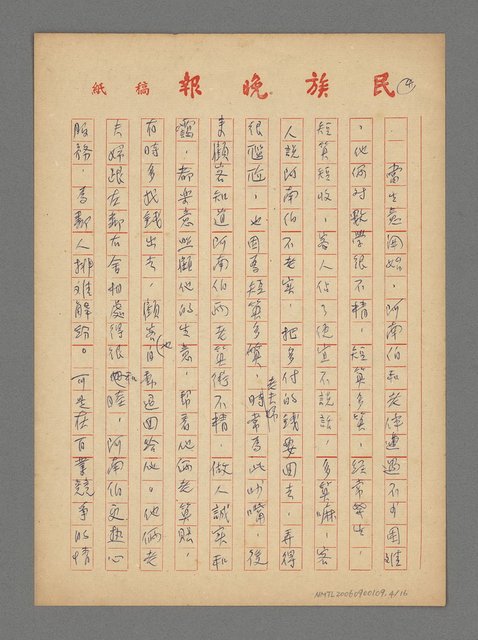 民族晚報 稿紙
4
當生意開始，阿南伯和老伴遭遇不少困難
，他倆對數學很不精，短算多算，經常發生，
短算短收，客人佔了便宜不說話，多算嘛，客
人說阿南伯不老實，把多付的錢要回去，弄得
很尷尬，也因為短算多算，老夫婦時常為此吵嘴，後
來顧客知道阿南伯兩老算術不精，做人誠實和
靄，都樂意照顧他的生意，幫着他倆老算賬，
有時多找錢出去，顧客也自動退回給他。他倆老
夫婦跟左鄰右舍相處得很和睦，阿南伯更熱心
服務，為鄰人排難解紛。可是在百業競爭的情
NMTL20060900109, 4/16